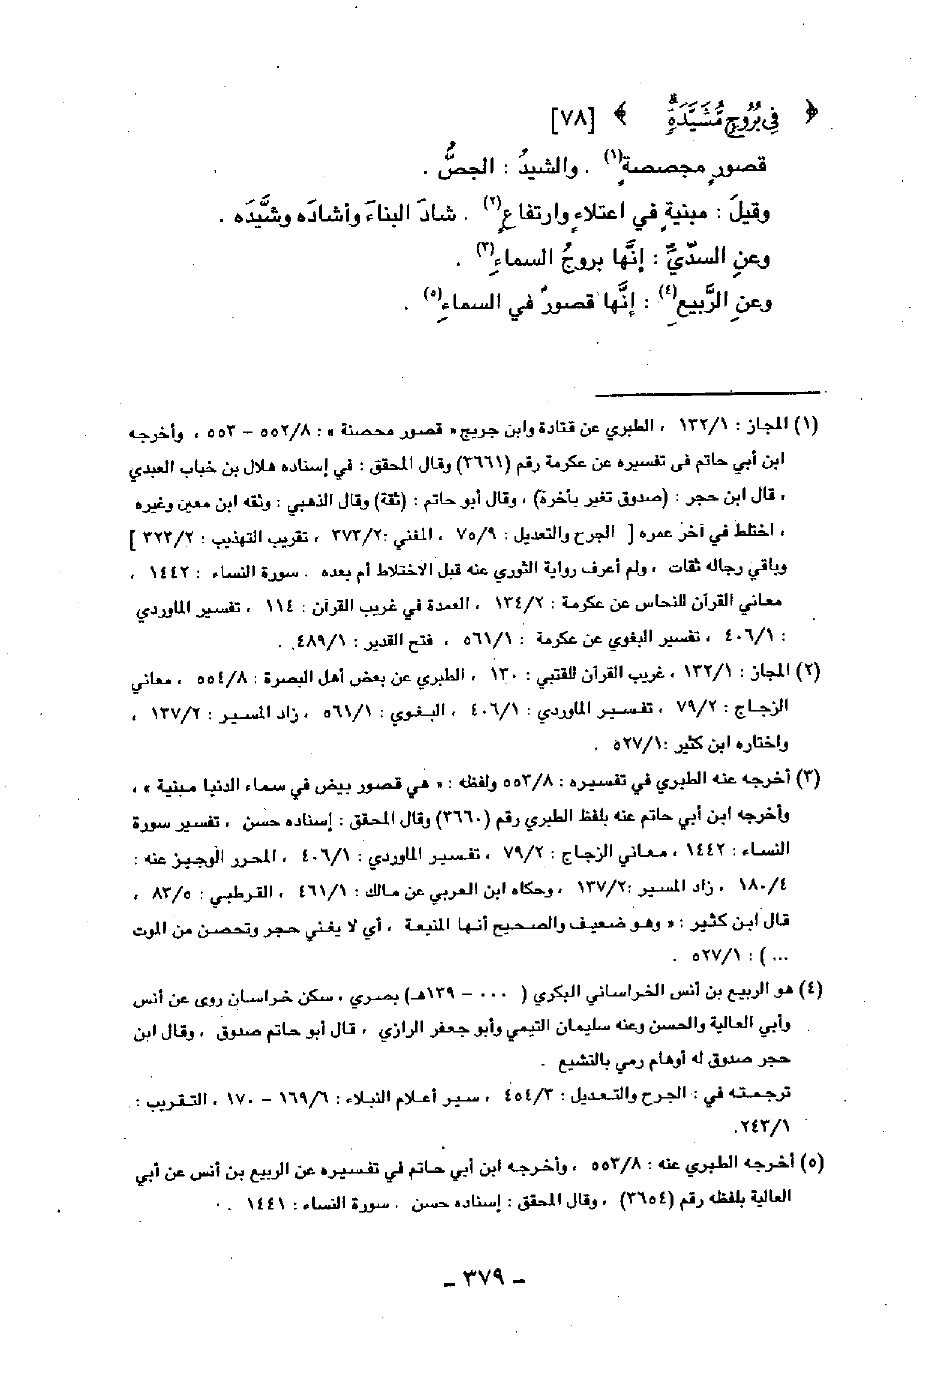 ﴿ فِي بُرُوجٍ مُّشَيَّدَةٍ ﴾ [٧٨]
قصورٍ مجصصةٍ(١) . والشيدُ : الجصُّ .
وقيلَ : مبنيةٍ في اعتلاءٍ وارتفاعٍ(٢) . شادَ البناءَ وأشادَه وشَيَّدَه .
وعنِ السدّيِّ : إنَّها بروجُ السماءِ(٣) .
وعنِ الرَّبيعِ(٤) : إنَّها قصورٌ في السماءِ(٥) .
(١) المجاز : ١٣٢/١ ، الطبري عن قتادة وابن جريج « قصور محصنة » : ٥٥٢/٨ – ٥٥٣ ، وأخرجه
ابن أبي حاتم فى تفسيره عن عكرمة رقم (٣٦٦١) وقال المحقق : في إسناده هلال بن خباب العبدي
، قال ابن حجر : (صدوق تغير بأخرة) ، وقال أبو حاتم : (ثقة) وقال الذهبي : وثقه ابن معين وغيره
، اختلط في آخر عمره [ الجرح والتعديل : ٧٥/٩ ، المغني :٣٧٣/٢ ، تقريب التهذيب : ٣٢٣/٢ ]
وباقي رجاله ثقات ، ولم أعرف رواية الثوري عنه قبل الاختلاط أم بعده . سورة النساء : ١٤٤٢ ،
معاني القرآن للنحاس عن عكرمة : ١٣٤/٢ ، العمدة في غريب القرآن : ١١٤ ، تفسير الماوردي
: ٤٠٦/١ ، تفسير البغوي عن عكرمة : ٥٦١/١ ، فتح القدير : ٤٨٩/١ .
(٢) المجاز : ١٣٢/١ ، غريب القرآن للقتبي : ١٣٠ ، الطبري عن بعض أهل البصرة : ٥٥٤/٨ ، معاني
الزجاج : ٧٩/٢ ، تفسير الماوردي : ٤٠٦/١ ، البغوي : ٥٦١/١ ، زاد المسير : ١٣٧/٢ ،
واختاره ابن كثير :٥٢٧/١ .
(٣) أخرجه عنه الطبري في تفسيره : ٥٥٣/٨ ولفظه : « هي قصور بيض في سماء الدنيا مبنية » ،
وأخرجه ابن أبي حاتم عنه بلفظ الطبري رقم (٣٦٦٠) وقال المحقق : إسناده حسن ، تفسير سورة
النساء : ١٤٤٢ ، معاني الزجاج : ٧٩/٢ ، تفسير الماوردي : ٤٠٦/١ ، المحرر الوجيز عنه :
١٨٠/٤ ، زاد المسير :١٣٧/٢ ، وحكاه ابن العربي عن مالك : ٤٦١/١ ، القرطبي : ٨٣/٥ ،
قال ابن كثير : « وهو ضعيف والصحيح أنها المنيعة ، أي لا يغني حجر وتحصن من الموت
... ) : ٥٢٧/١ .
(٤) هو الربيع بن أنس الخراساني البكري ( ٠٠٠ – ١٣٩هـ) بصري ، سكن خراسان روى عن أنس
وأبي العالية والحسن وعنه سليمان التيمي وأبو جعفر الرازي ، قال أبو حاتم صدوق ، وقال ابن
حجر صدوق له أوهام رمي بالتشيع .
ترجمته في : الجرح والتعديل : ٤٥٤/٣ ، سير أعلام النبلاء : ١٦٩/٦ – ١٧٠ ، التقريب :
٢٤٣/١.
(٥) أخرجه الطبري عنه : ٥٥٣/٨ ، وأخرجه ابن أبي حاتم في تفسيره عن الربيع بن أنس عن أبي
العالية بلفظه رقم (٣٦٥٤) ، وقال المحقق : إسناده حسن . سورة النساء : ١٤٤١ .
ـ ٣٧٩ ـ